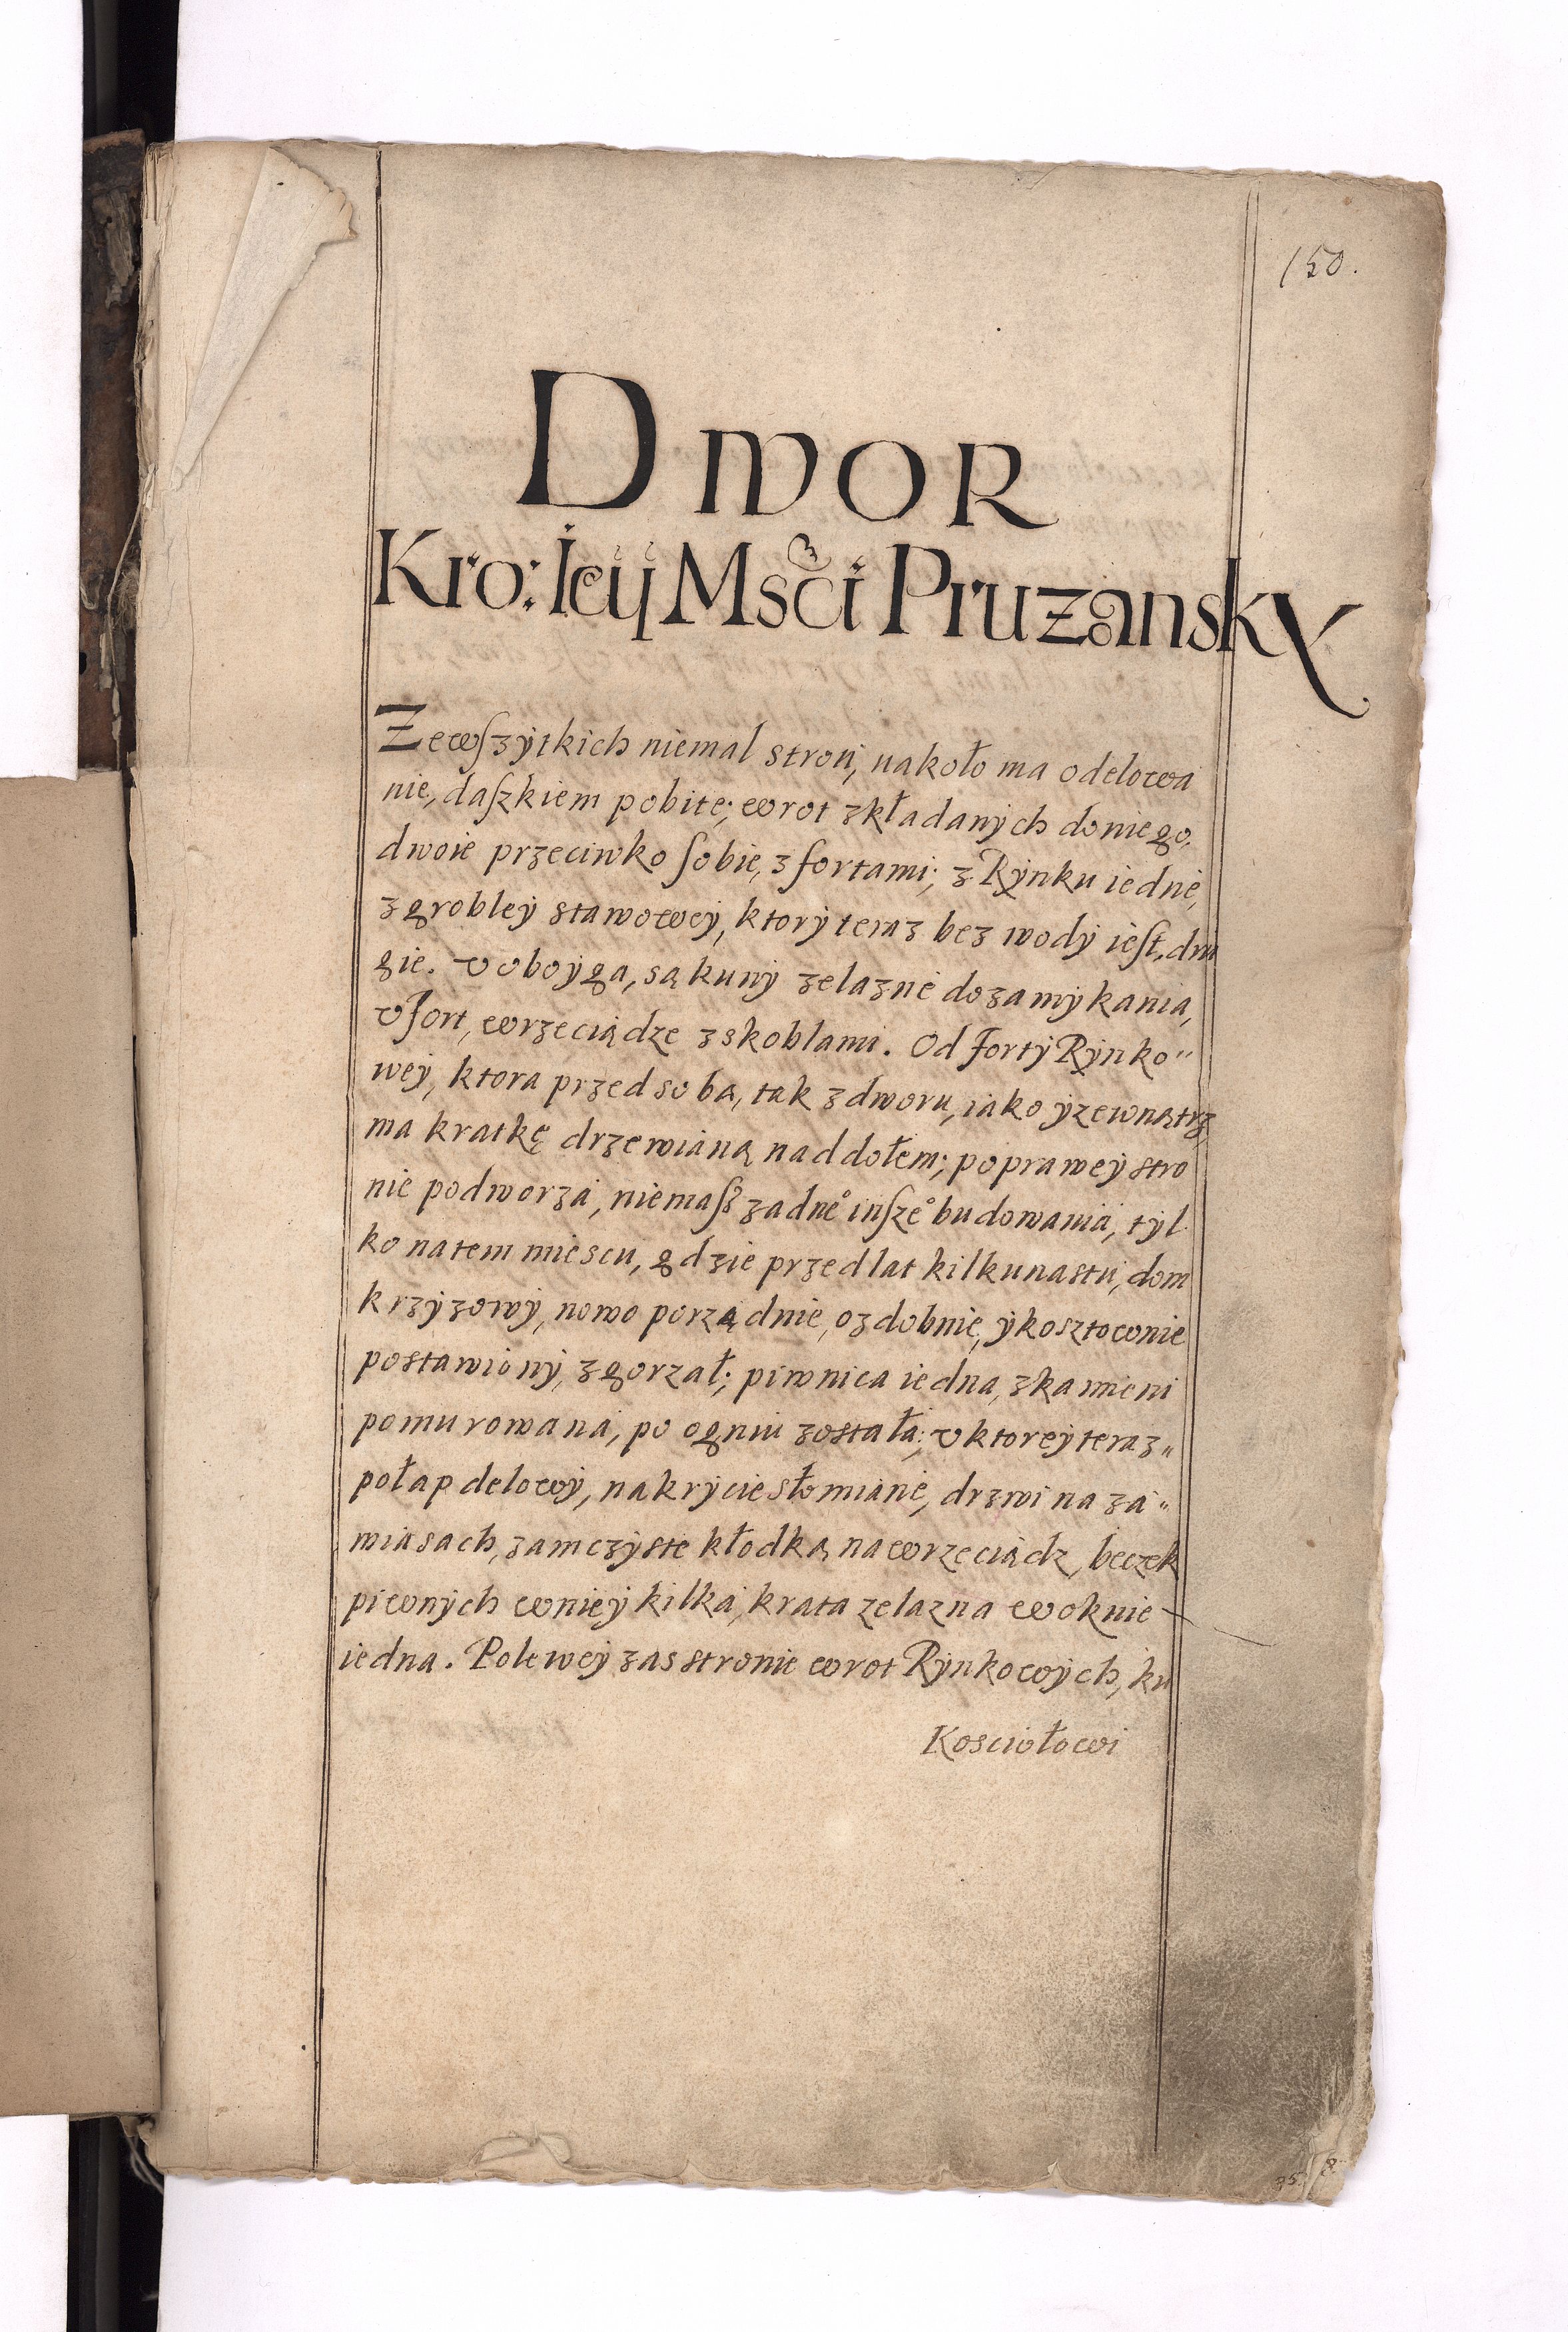 150.
DwoR
Kro: Ieÿ Mści PruzanskY
Zewſzÿtkich niemal stroń, nakoło ma odelowa
nie, daſzkiem pobite; wrot zkładanÿch do niego,
dwoie przeciwko ſobie, z fortami; z Rÿnku iedne,
z grobleÿ stawoweÿ, ktorÿ teraz bez wodÿ ieſt, dru
gie. v oboÿga, są kunÿ zelazne do zamÿkania,
v fort, wrzeciądze z skoblami. Od fortÿ Rÿnko"
weÿ, ktora przed sobą, tak z dworu, iako ÿ zewnątrz,
ma kratkę drzewianą nad dołem; po praweÿ stro
nie podworza, niemaſz zadneº inſzeº budowania, tÿl
ko na tem miescu, gdzie przed lat kilkunastu, dom
krzÿzowÿ, nowo porządnie, ozdobnie, ÿ kosztownie
postawionÿ, zgorzał; piwnica iedna, z kamieni
pomurowana, po ogniu została; v ktoreÿ teraz"
połap delowÿ, nakrÿcie słomiane, drzwi na za"
wiasach, zamczÿste kłodką na wrzeciądz, beczek
piwnÿch w nieÿ kilka, krata zelazna w oknie
iedna. Po leweÿ zas stronie wrot Rÿnkowÿch, ku
Kosciołowi